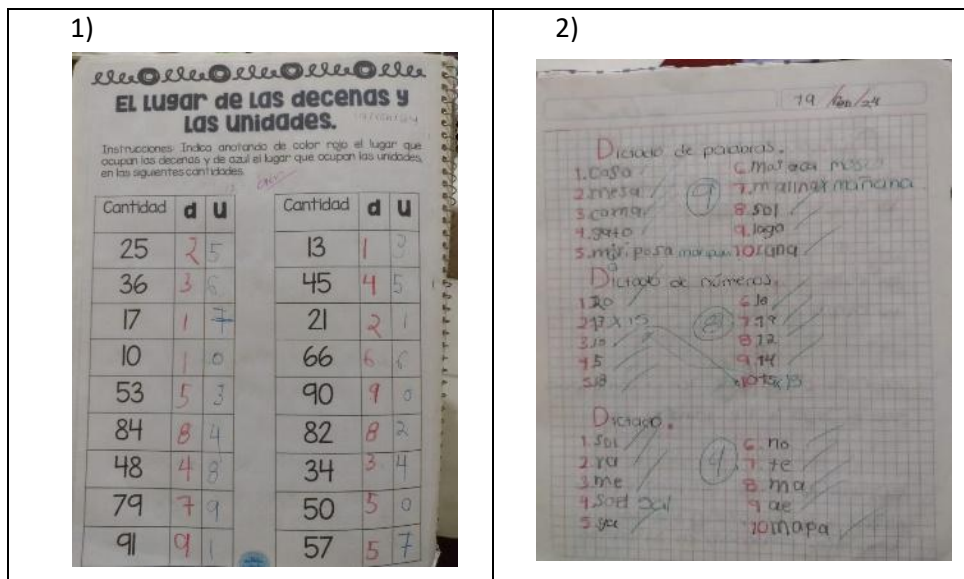 1)
El Lugar de Las decenas y
Las unidades.
Instrucciones: Indica anotando de color rojo el lugar que
ocupan las decenas y de azul el lugar que ocupan las unidades,
en las siguientes cantidades.
Cantidad d u
25 2 5
36 3 6
17 1 7
10 1 0
53 5 3
84 8 4
48 4 8
79 7 9
91 9 1
Cantidad d u
13 1 3
45 4 5
21 2 1
66 6 6
90 9 0
82 8 2
34 3 4
50 5 0
57 5 7
2)
Dictado de palabras.
1.casa
2.mesa
3.cama
4.gato
5.mariposa
6.
7.
8.sol
9.lago
10.rana
9
Dictado de números.
1.20
2.17 x 15
3.10
4.5
5.18
6.10
7.19
8.12
9.14
10.15
8
Dictado.
1.sol
2.ra
3.me
4.
5.
6.no
7.te
8.ma
9.ae
10.mapa